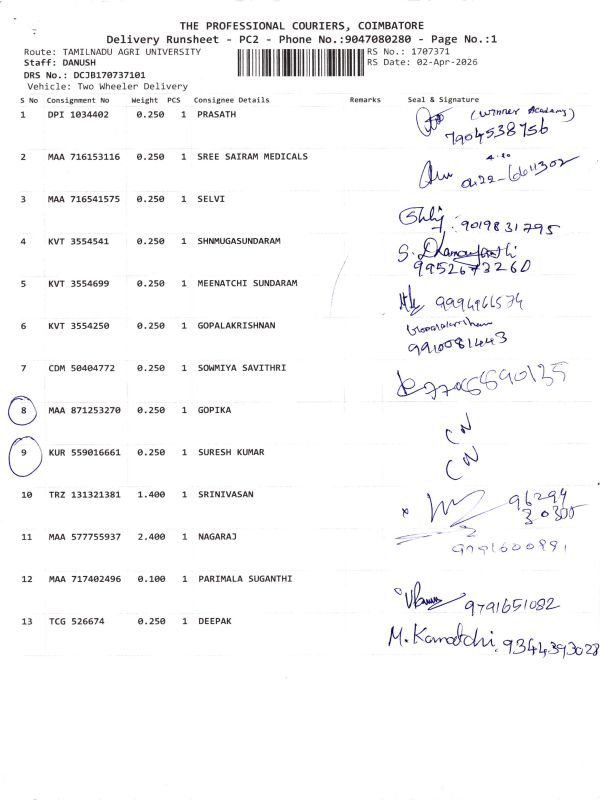 THE PROFESSIONAL COURIERS, COIMBATORE
Delivery Runsheet - PC2 - Phone No.:9047080280 - Page No.:1
Route: TAMILNADU AGRI UNIVERSITY RS No.: 1707371
Staff: DANUSH RS Date: 02-Apr-2026
DRS No.: DCJB170737101
Vehicle: Two Wheeler Delivery
S No Consignment No Weight PCS Consignee Details Remarks Seal & Signature
1 DPI 1034402 0.250 1 PRASATH (Winner Academy)
7904538756
2 MAA 716153116 0.250 1 SREE SAIRAM MEDICALS 4.20
0422-6611302
3 MAA 716541575 0.250 1 SELVI
9019831795
4 KVT 3554541 0.250 1 SHNMUGASUNDARAM
9952673260
5 KVT 3554699 0.250 1 MEENATCHI SUNDARAM
9994966574
6 KVT 3554250 0.250 1 GOPALAKRISHNAN Gopalakrishnan
9910081443
7 CDM 50404772 0.250 1 SOWMIYA SAVITHRI
8 MAA 871253270 0.250 1 GOPIKA CN
9 KUR 559016661 0.250 1 SURESH KUMAR CN
10 TRZ 131321381 1.400 1 SRINIVASAN 96294
30305
11 MAA 577755937 2.400 1 NAGARAJ
12 MAA 717402496 0.100 1 PARIMALA SUGANTHI
9791651082
13 TCG 526674 0.250 1 DEEPAK M. Kamatchi. 9344393028